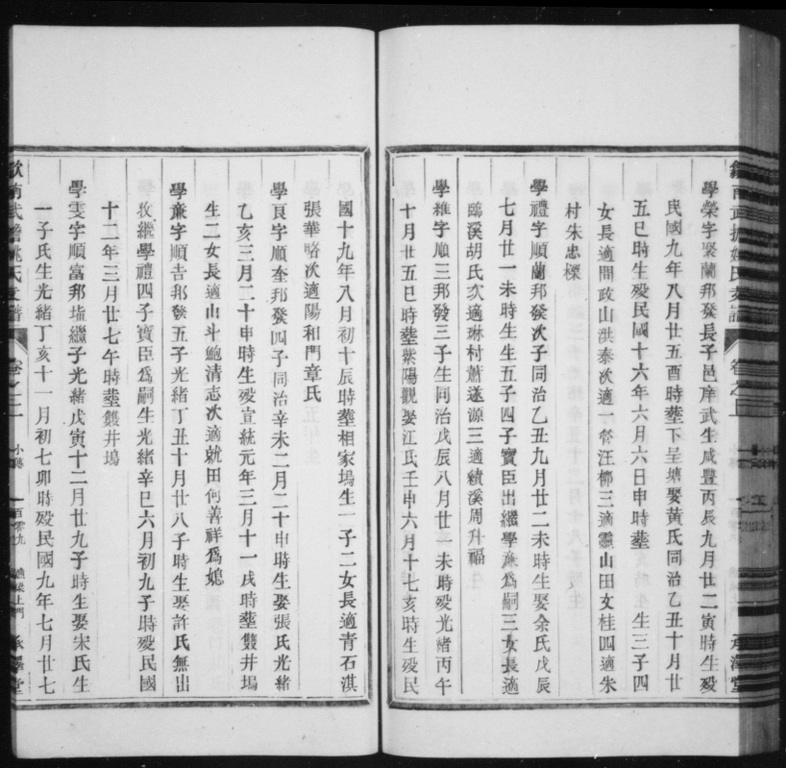 學榮字聚蘭邦發長子邑庠武生咸豐丙辰九月廿二寅時生歿
民國九年八月廿五酉時塟下呈塘娶黃氏同治乙丑十月廿
五巳時生歿民國十六年六月六日申時塟　生三子四
女長適問政山洪泰次適一常汪柳三適靈山田文桂四適朱
村朱忠樑
學禮字順蘭邦發次子同治乙丑九月廿二未時生娶余氏戊辰
七月廿一未時生生五子四子寶臣出繼學濂為嗣三女長適
鴟溪胡氏次適琳村蕭遂源三適績溪周升福
學維字順三邦發三子生同治戊辰八月廿一未時歿光緒丙午
十月廿五巳時塟紫陽觀娶江氏壬申六月十七亥時生歿民
國十九年八月初十辰時塟相家塢生一子二女長適青石淇
張華略次適陽和門章氏
學良字順奎邦發四子同治辛未二月二十申時生娶張氏光緒
乙亥三月二十申時生歿宣統元年三月十一戌時塟雙井塢
生二女長適山斗鮑清志次適就田何善祥為媳
學濂字順吉邦發五子光緒丁丑十月廿八子時生娶許氏無出
收繼學禮四子寶臣為嗣生光緒辛巳六月初九子時歿民國
十二年三月廿七午時塟雙井塢
學雯字順富邦塩繼子光緒戊寅十二月廿九子時生娶宋氏生
一子氏生光緒丁亥十一月初七卯時歿民國九年七月廿七
歙南武擔姚氏支譜
卷之二
百零九
承澤堂